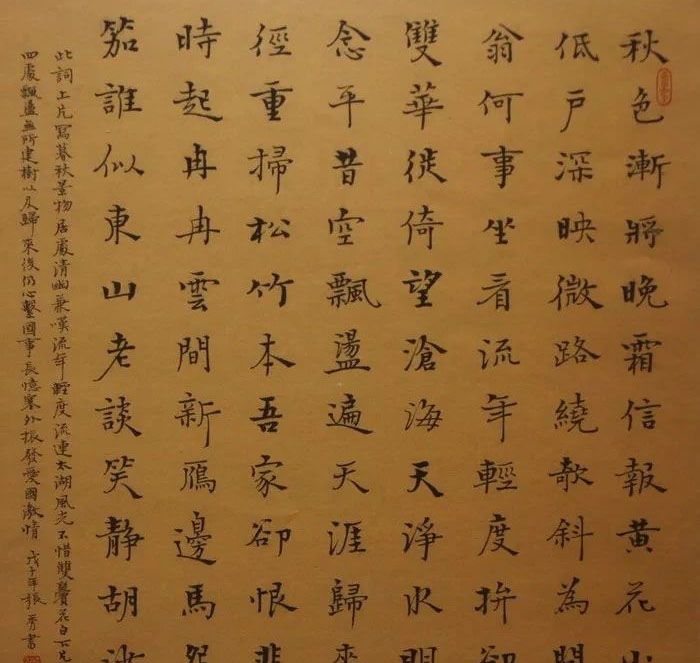 秋色漸將晚霜信報黃花
低戶深映微路繞欹斜為問
翁何事坐看流年輕度拚卻
雙華徙倚望滄海天淨水明
念平昔空飄盪遍天涯歸來
徑重掃松竹本吾家卻恨悲
時起冉冉雲間新鴈邊馬怨
笳誰似東山老談笑靜胡沙
此詞上片寫暮秋景物居處清幽兼嘆流年輕度流連太湖風光不惜雙鬢花白下片
四處飄盪無所建樹以及歸來後仍心繫國事長憶塞外振發愛國激情 戊子年振書